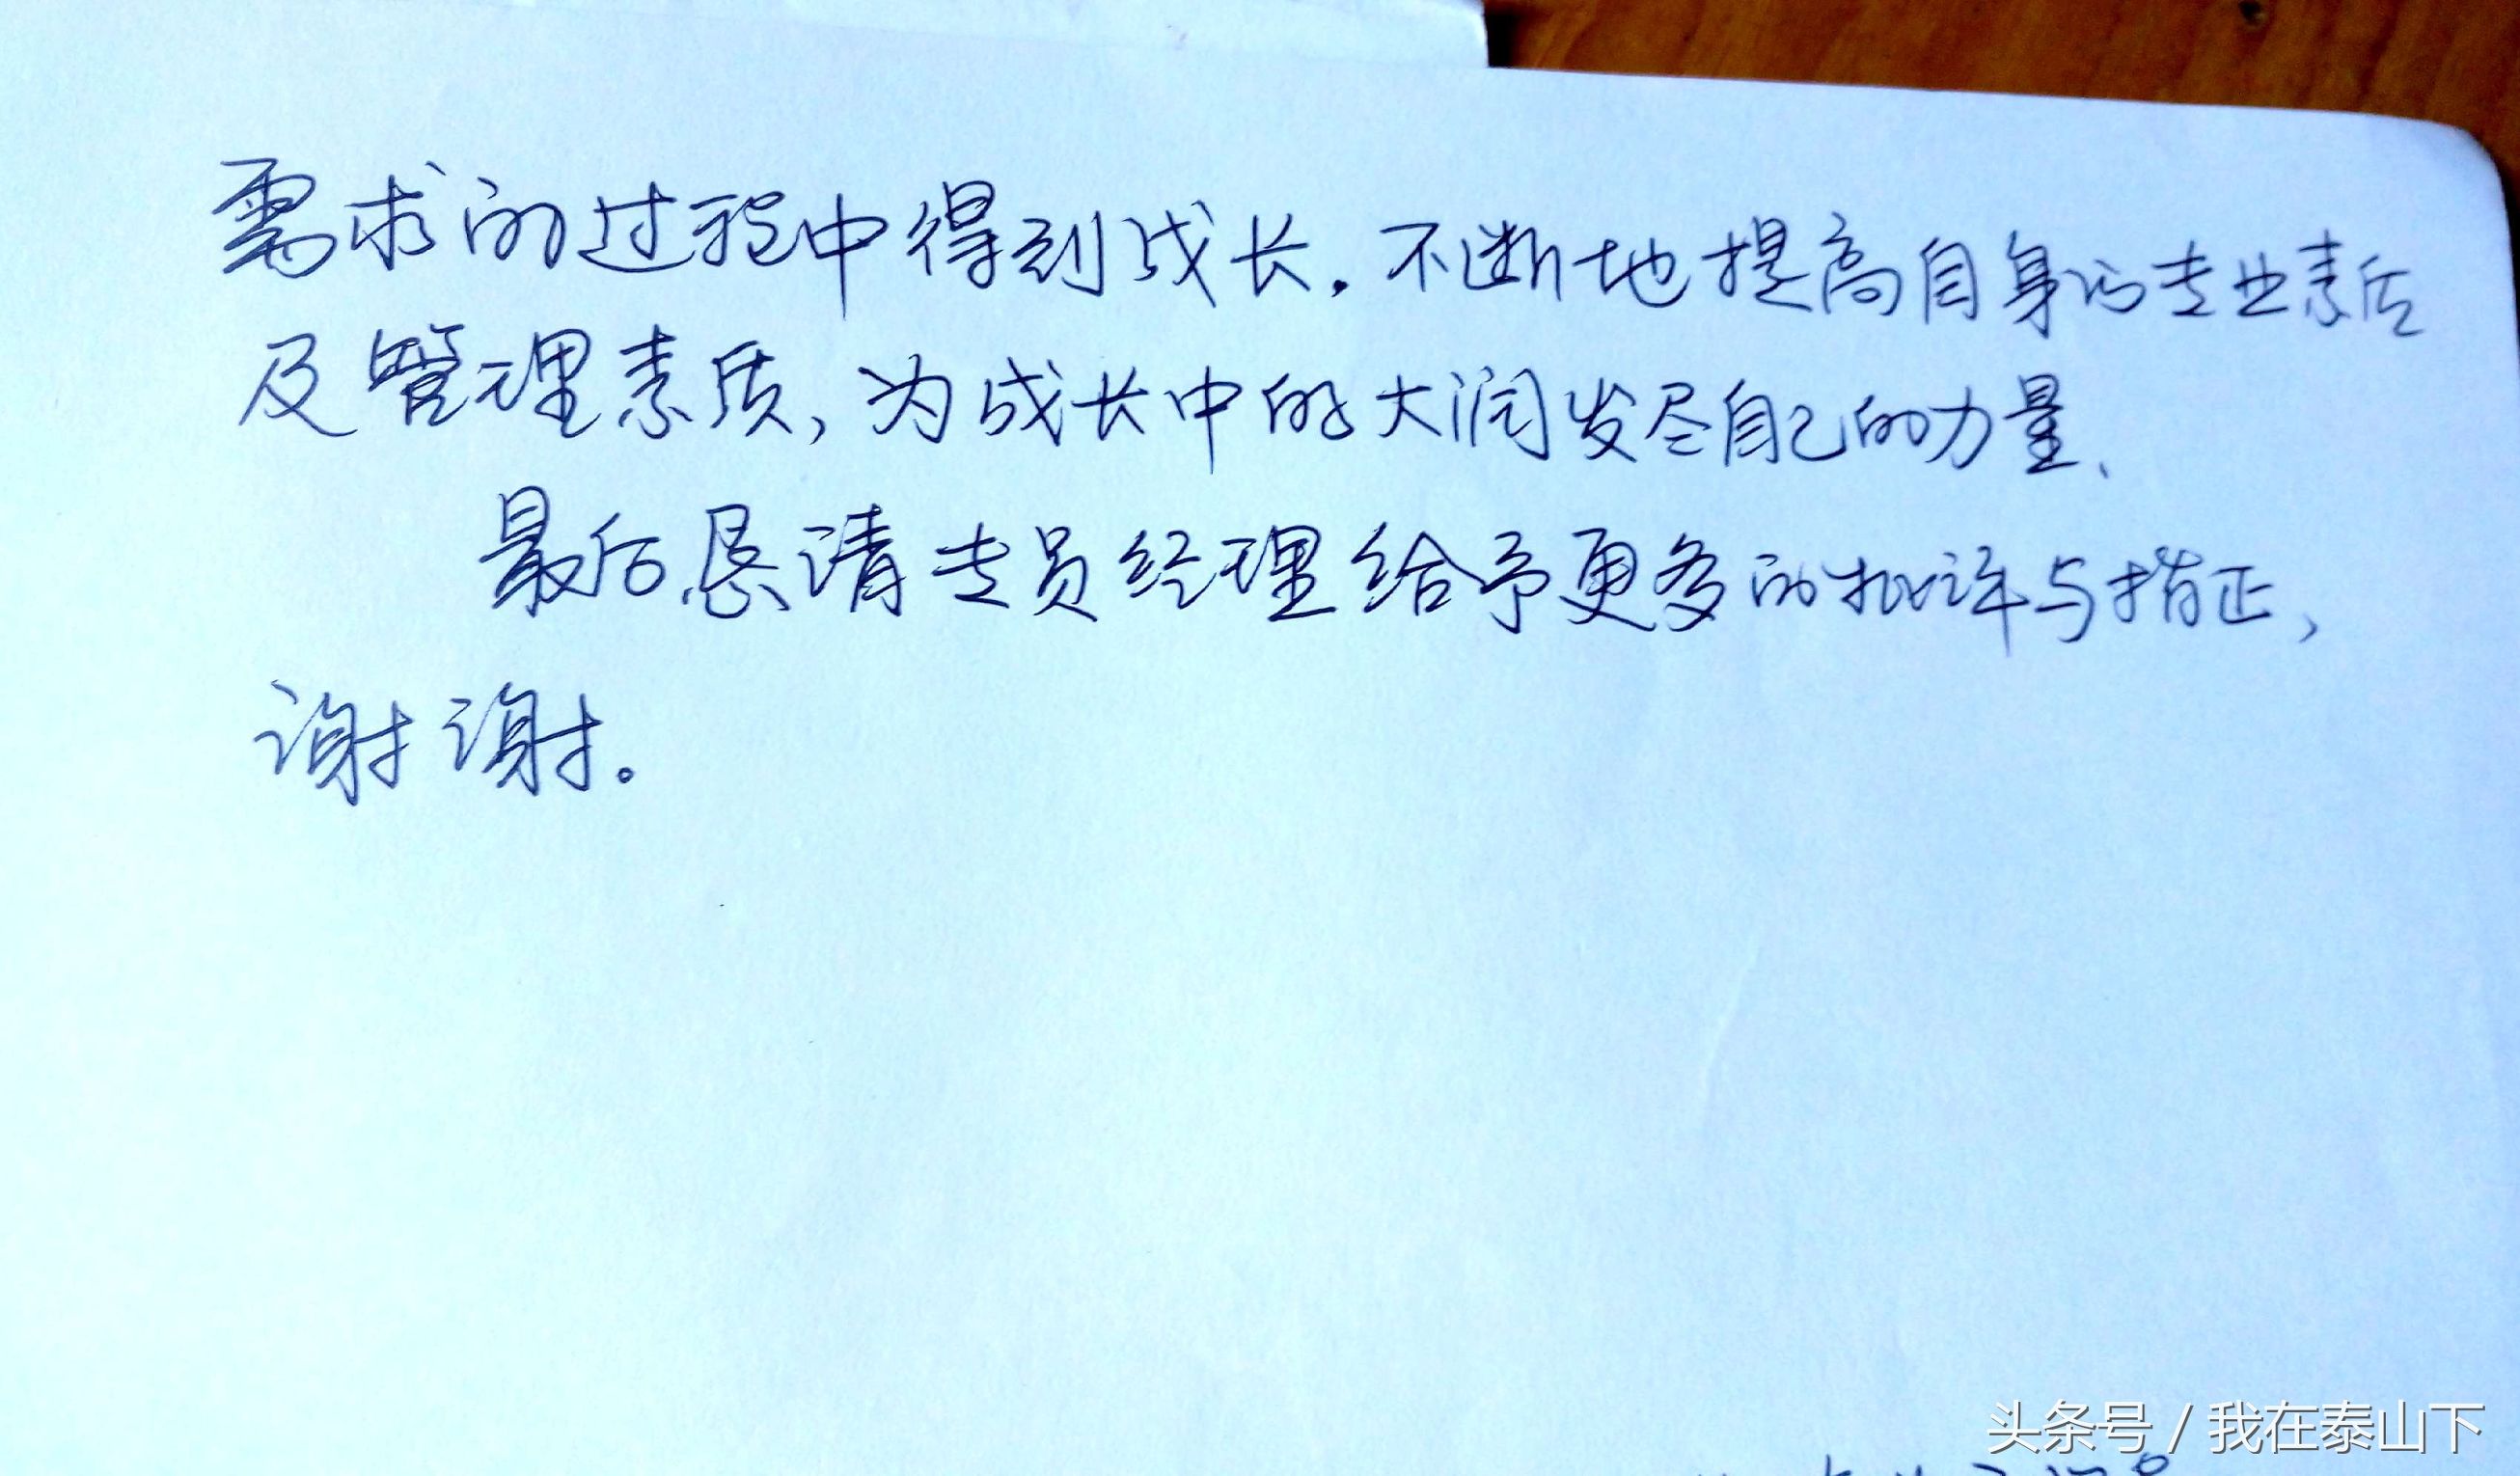 需求的过程中得到成长.不断地提高自身的专业素质
及管理素质,为成长中的大润发尽自己的力量、
最后恳请专员经理给予更多的批评与指正,
谢谢。
头条号/我在泰山下